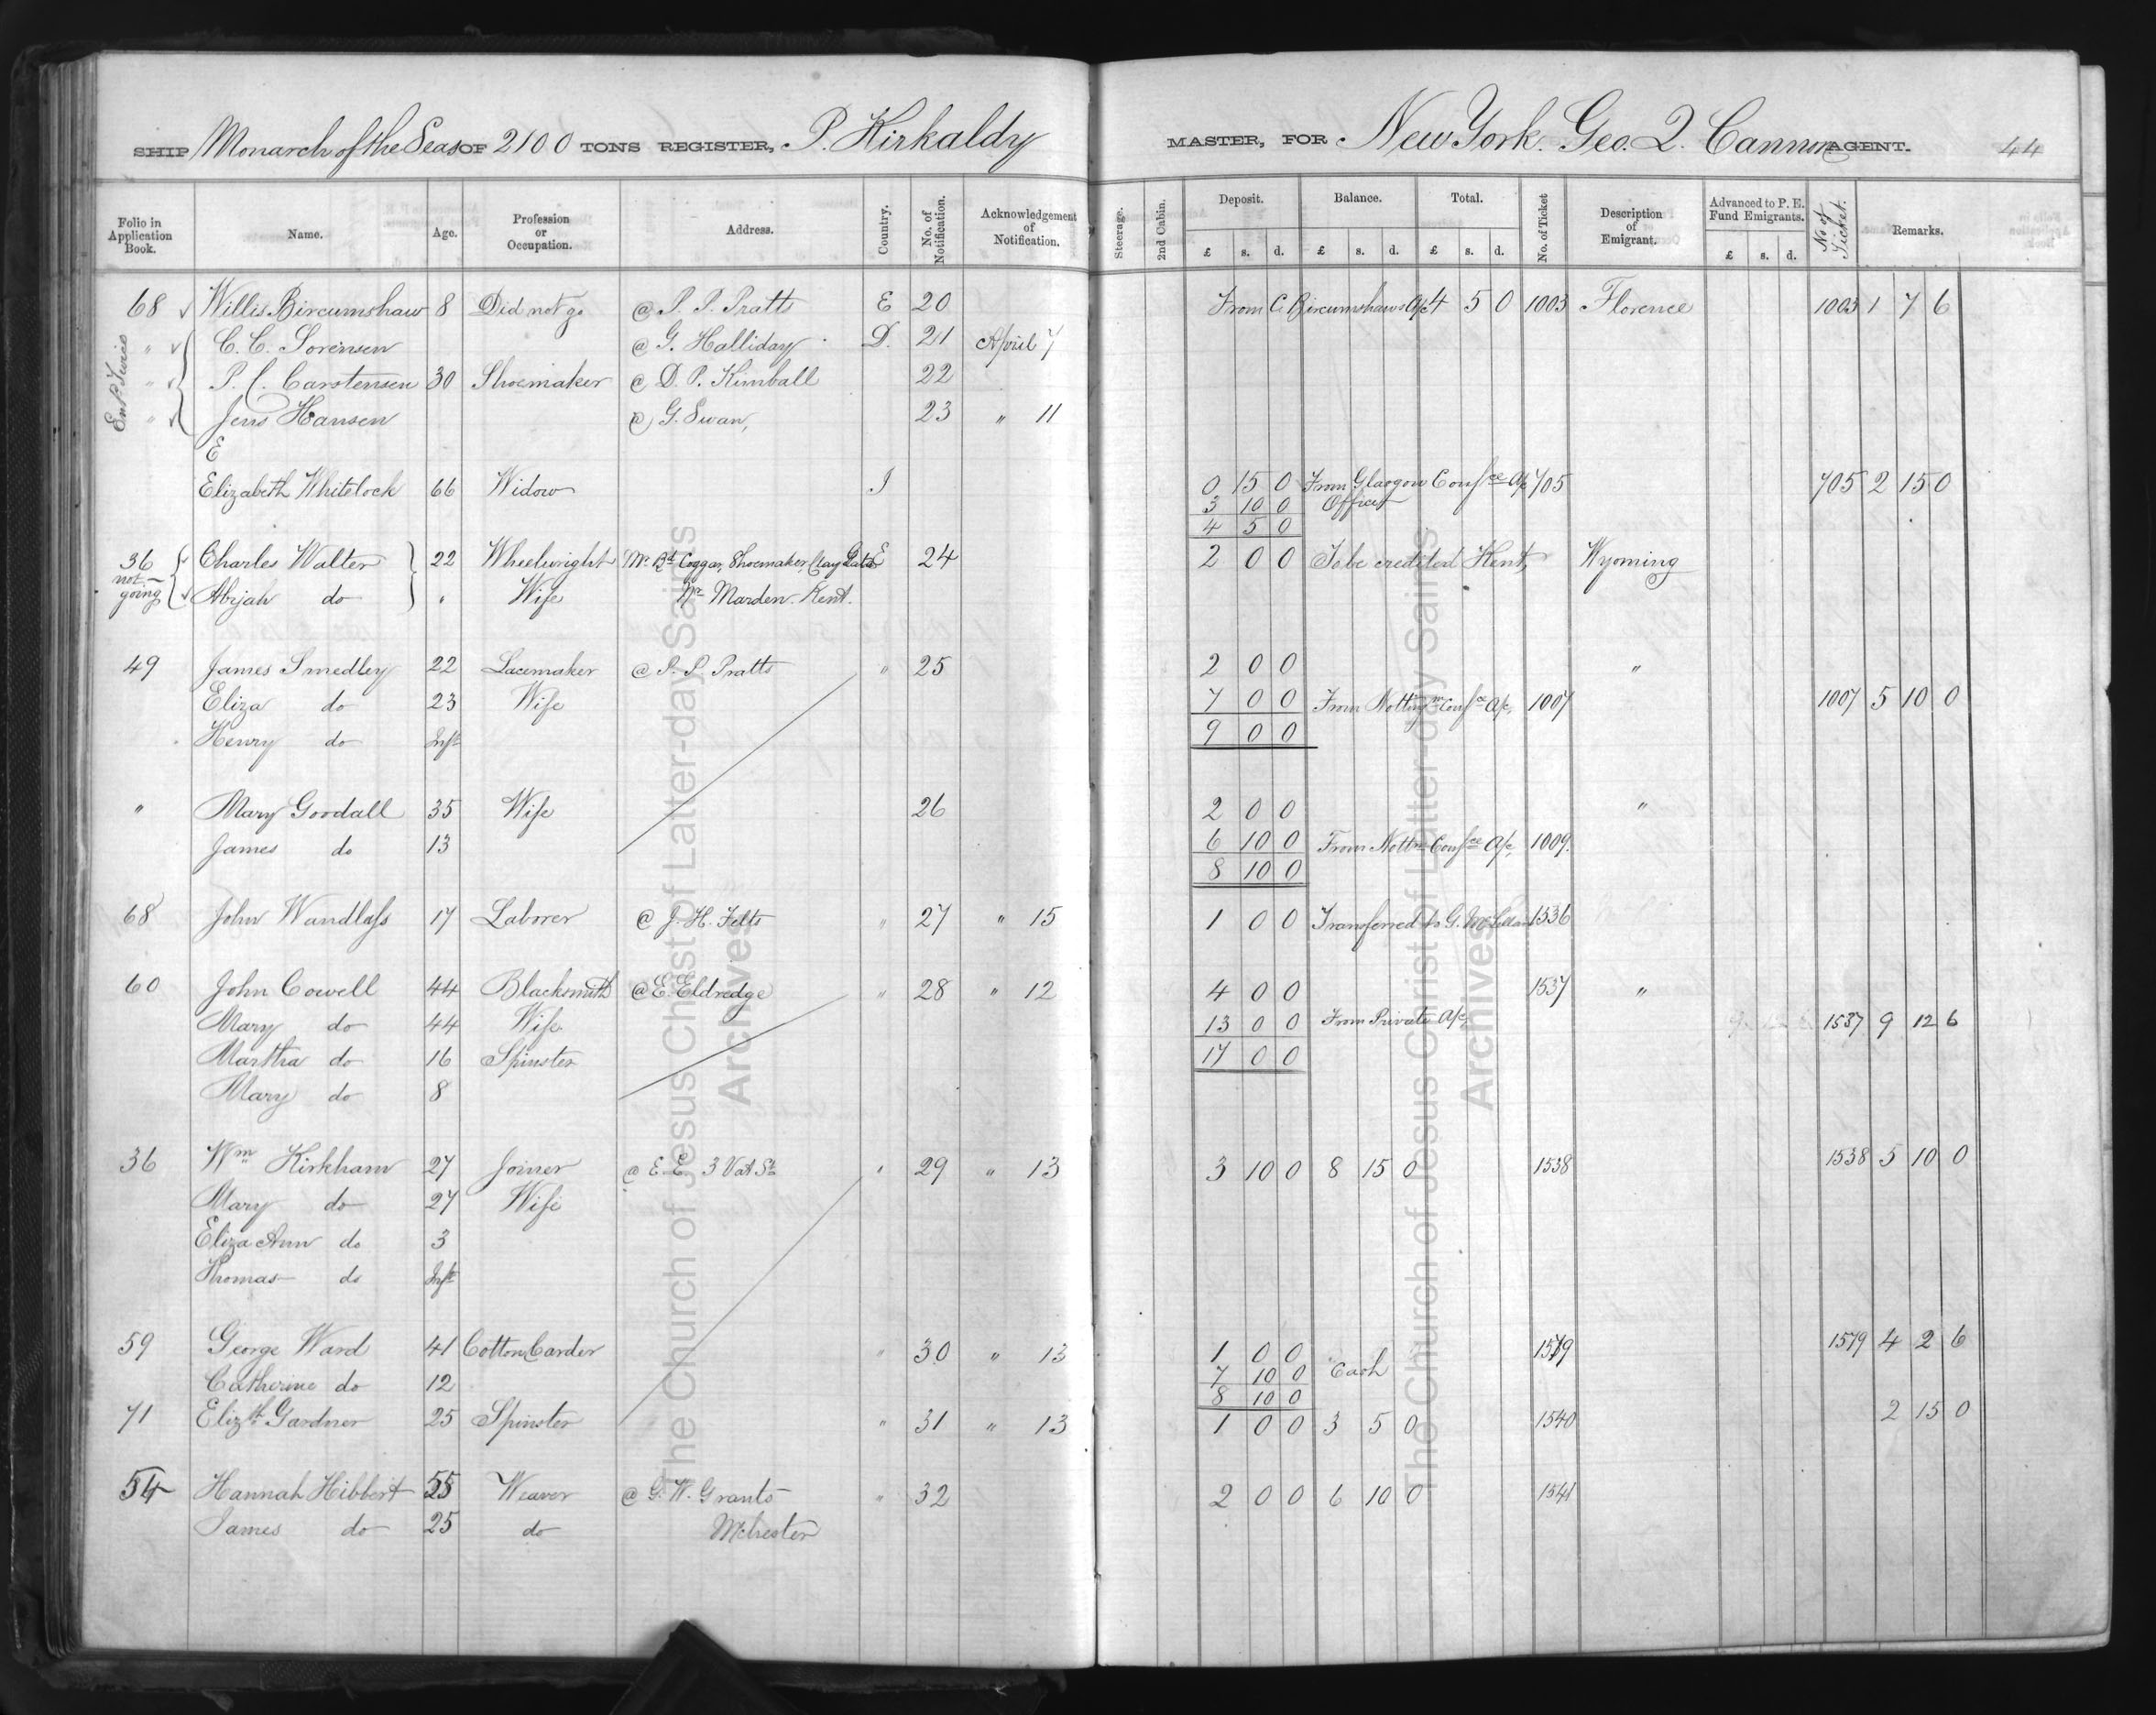 SHIP Monarch of the Seas OF 2100 TONS REGISTER, P. Kirkaldy MASTER, FOR New York. Geo. Q. Cannon AGENT. 44
Folio in Application Book. Name. Age. Profession or Occupation. Address. Country. No. of Notification. Acknowledgement of Notification. Steerage. 2nd Cabin. Deposit. £ s. d. Balance. £ s. d. Total. £ s. d. No. of Ticket Description of Emigrant. Advanced to P. E. Fund Emigrants. £ s. d. No of Ticket. Remarks.
68 Willis Bircumshaw 8 Did not go @ P. P. Pratts E 20 From C. Bircumshaws A/c 4 5 0 1003 Florence 1003 1 7 6
" C. C. Sorensen @ G. Halliday D. 21 April 7
" P. C. Carstensen 30 Shoemaker @ D. P. Kimball 22
" Jens Hansen @ G. Swan, 23 " 11
E
Elizabeth Whitelock 66 Widow I 0 15 0 From Glasgow Confce A/c 705 705 2 15 0
3 10 0 Office
4 5 0
36 Charles Walter 22 Wheelwright Mr. Rd. Coggar, Shoemaker, Clay Gate E 24 2 0 0 To be credited Kent, Wyoming
not going Abijah do " Wife Nr Marden. Kent.
49 James Smedley 22 Lacemaker @ P. P. Pratts " 25 2 0 0 "
Eliza do 23 Wife 7 0 0 From Nottingm Confce A/c, 1007 1007 5 10 0
Henry do Inft 9 0 0
" Mary Goodall 35 Wife 26 2 0 0 "
James do 13 6 10 0 From Nottm Confce A/c, 1009.
8 10 0
68 John Wandlass 17 Laborer @ J. H. Felts " 27 " 15 1 0 0 Transferred to G. McLellan 1536
60 John Cowell 44 Blacksmith @ E. Eldredge " 28 " 12 4 0 0 1537 "
Mary do 44 Wife 13 0 0 From Private A/c, 1537 9 12 6
Martha do 16 Spinster 17 0 0
Mary do 8
36 Wm Kirkham 27 Joiner @ E. E. 3 Vat St. " 29 " 13 3 10 0 8 15 0 1538 1538 5 10 0
Mary do 27 Wife
Eliza Ann do 3
Thomas do Inft
59 George Ward 41 Cotton Carder " 30 " 13 1 0 0 1579 1579 4 2 6
7 10 0 Cash
Catherine do 12 8 10 0
71 Elizth Gardner 25 Spinster " 31 " 13 1 0 0 3 5 0 1540 2 15 0
54 Hannah Hibbert 55 Weaver @ G. W. Grants " 32 2 0 0 6 10 0 1541
James do 25 do Mchester
The Church of Jesus Christ of Latter-day Saints
Archives
The Church of Jesus Christ of Latter-day Saints
Archives